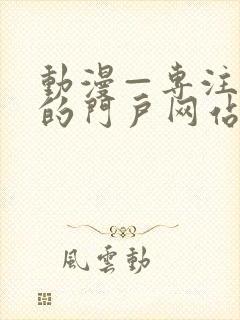 動漫—專注
的門戶网佔
風雲動